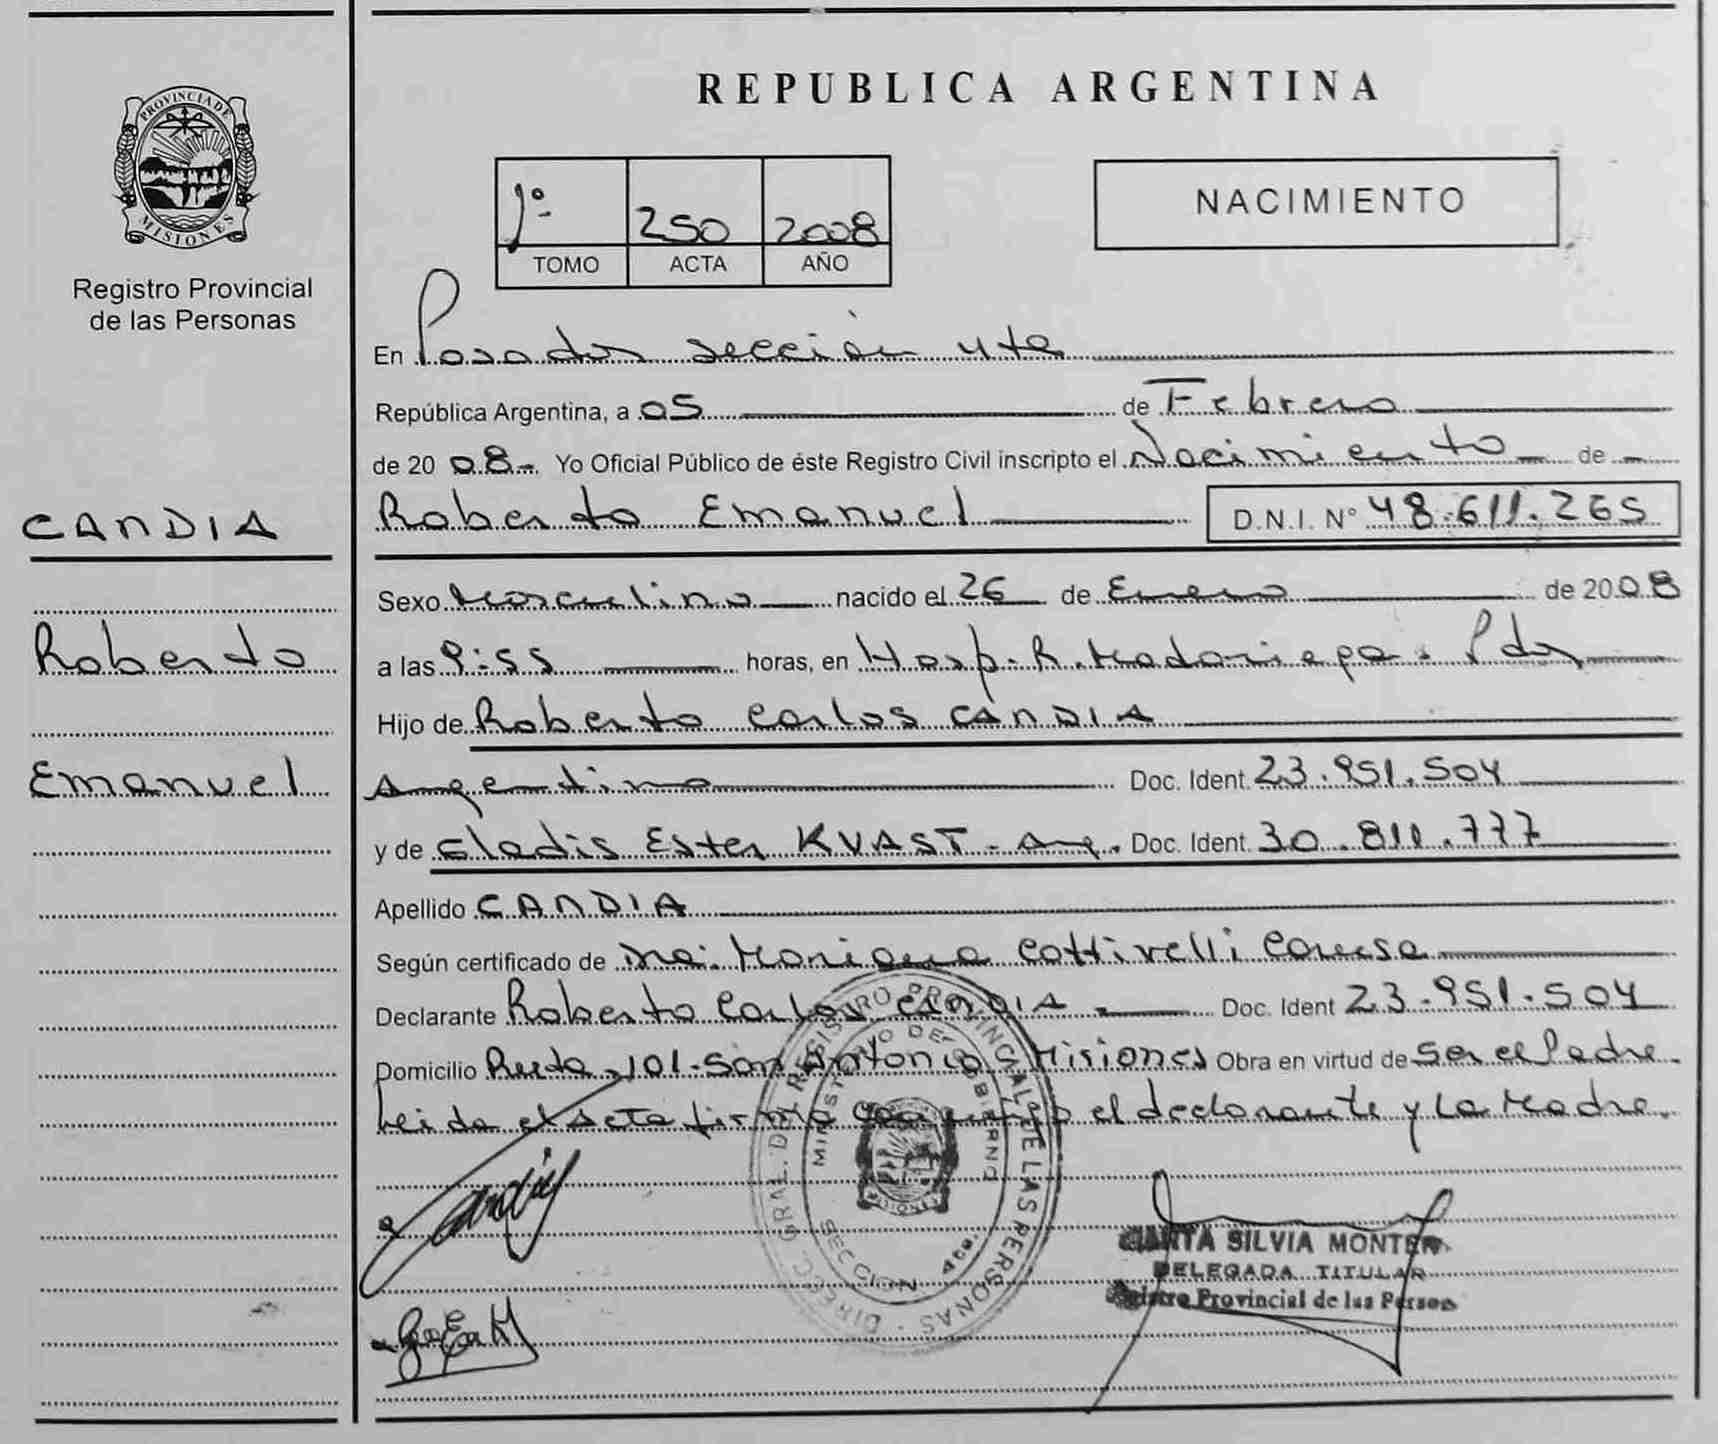 PROVINCIA DE
MISIONES
Registro Provincial
de las Personas
CANDIA
Roberto
Emanuel
REPUBLICA ARGENTINA
1º 250 2008
TOMO ACTA AÑO
NACIMIENTO
En Posadas sección 4ta
República Argentina, a 05 de Febrero
de 20 08.- Yo Oficial Público de éste Registro Civil inscripto el Nacimiento de
Roberto Emanuel D.N.I. Nº 48.611.265
Sexo Masculino nacido el 26 de Enero de 2008
a las 9:55 horas, en Hosp. R. Madariaga. Pdas
Hijo de Roberto Carlos CANDIA
Argentino Doc. Ident. 23.951.504
y de Gladis Ester KVAST - Arg. Doc. Ident. 30.811.777
Apellido CANDIA
Según certificado de Dra: Mariana Cottivelli
Declarante Roberto Carlos CANDIA Doc. Ident 23.951.504
Domicilio Ruta 101-San Antonio Misiones Obra en virtud de ser el Padre.
Leida el acta firma conmigo el declarante y La Madre.
DIRECC GRAL. DEL REGISTRO PROVINCIAL DE LAS PERSONAS
MINISTERIO DE GOBIERNO
SECCION 4ta.
SILVIA MONTE
DELEGADA TITULAR
Provincial de las Person